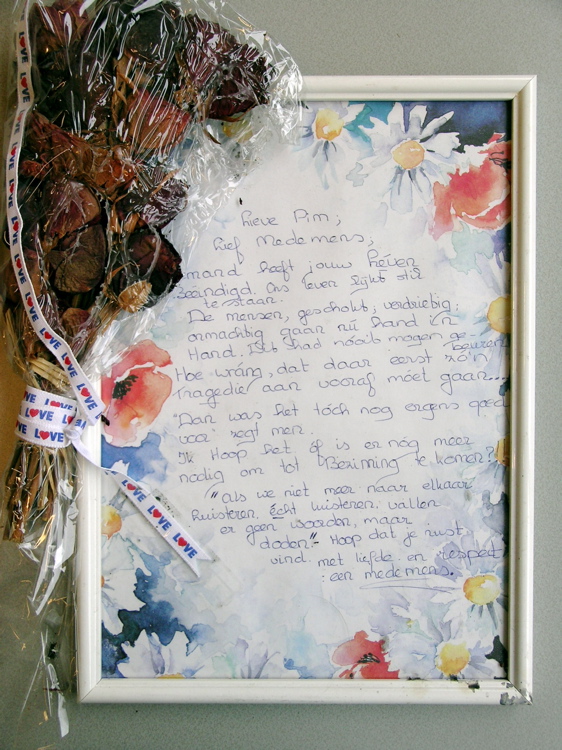 Lieve Pim;
Lief Medemens;
mand heeft jouw léven
beëindigd. Ons leven lijkt stil
te staan.
De mensen, geschokt, verdrietig;
onmachtig gaan nú hand in
Hand. Dit had nóóit mogen ge-
beuren.
Hoe wráng, dat daar eerst zó'n
Tragedie aan vooraf móet gaan...
"Dan was het tóch nog ergens goed
voor" zegt men.
Ik Hoop het óf is er nóg meer
nodig om tot Bezinning te komen??
"als we niet meer naar elkaar
luisteren, écht luisteren, vallen
er geen woorden, maar
doden". Hoop dat je rust
vind. met liefde en respect
: een medemens.
LOVE LOVE LOVE LOVE LOVE LOVE
LOVE LOVE LOVE
LOVE LOVE LOVE LOVE